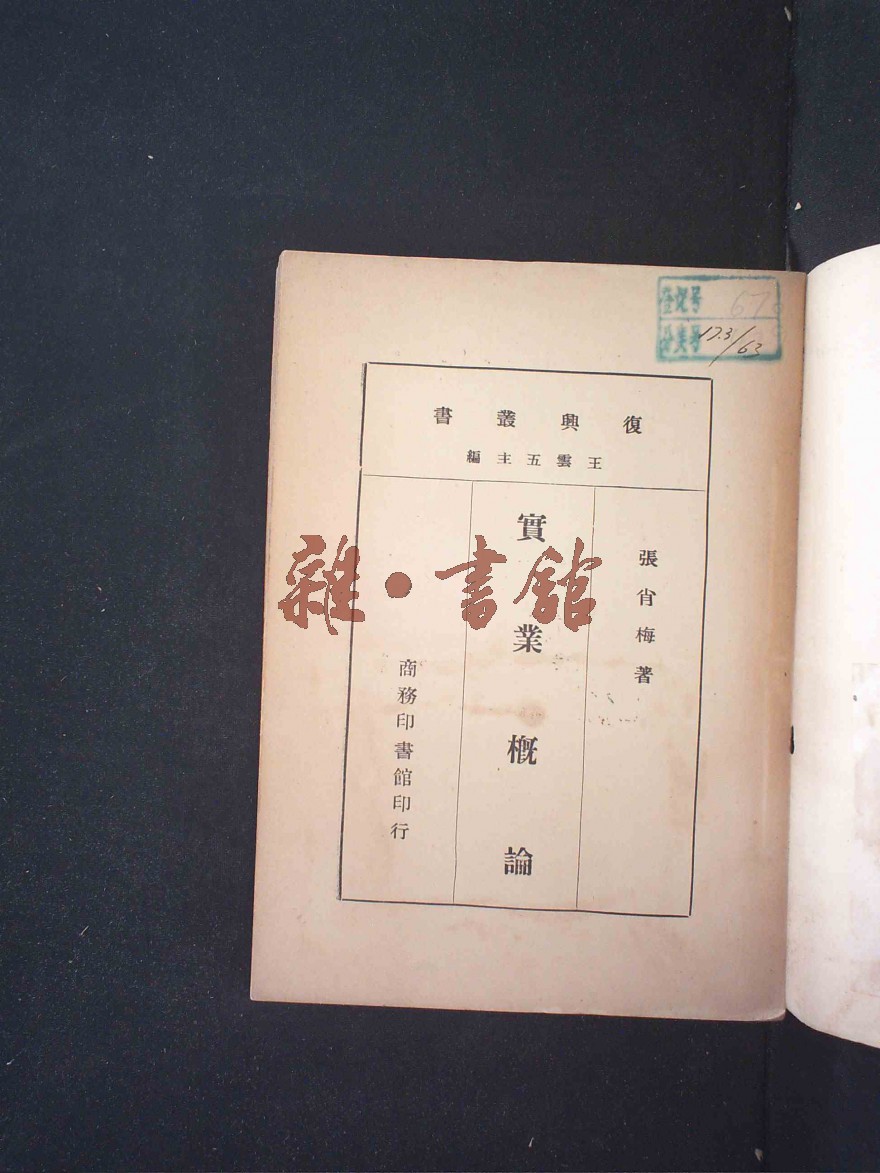 復興叢書
王雲五主編
張肖梅著
實業概論
商務印書館印行
雜·書館
登记号
分类号 17.3/63